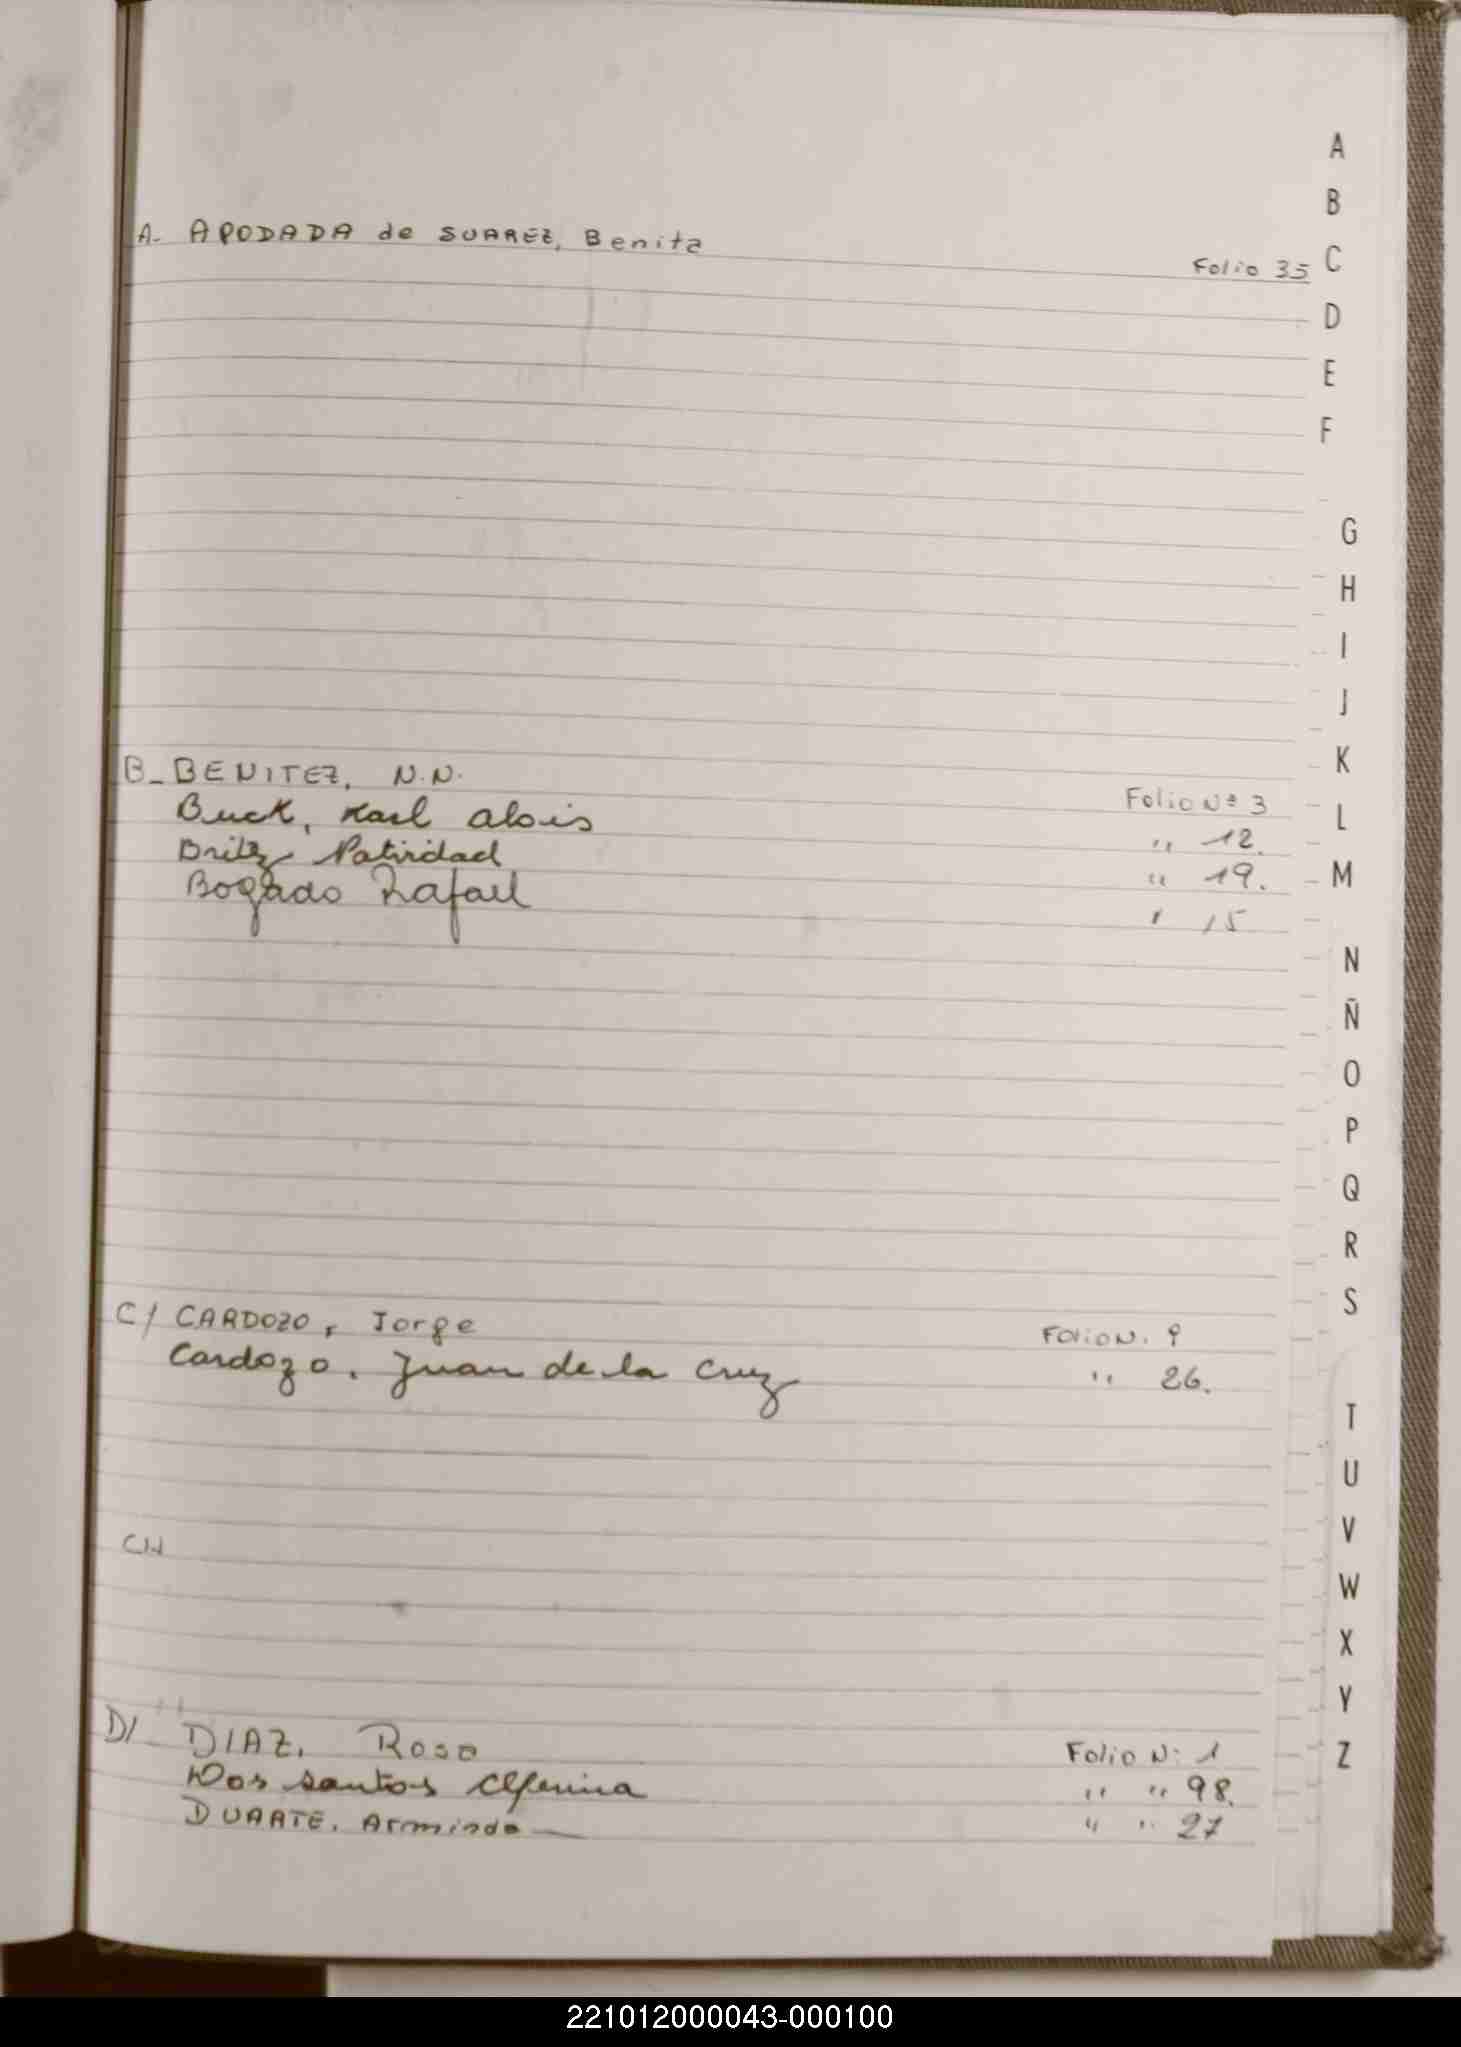 A- APODADA de SUAREZ, Benita Folio 35
B- BENITEZ, N.N. Folio Nº 3
Buck, Karl alois " 12.
Britz Natividad " 19.
Bogado Rafael " 15
C/ CARDOZO, Jorge Folio N. 9
Cardozo, Juan de la Cruz " 26.
CH
D/ DIAZ, Rosa Folio N: 1
Dos santos " " 98.
DUARTE, Armindo " " 27
A
B
C
D
E
F
G
H
I
J
K
L
M
N
Ñ
O
P
Q
R
S
T
U
V
W
X
Y
Z
221012000043-000100